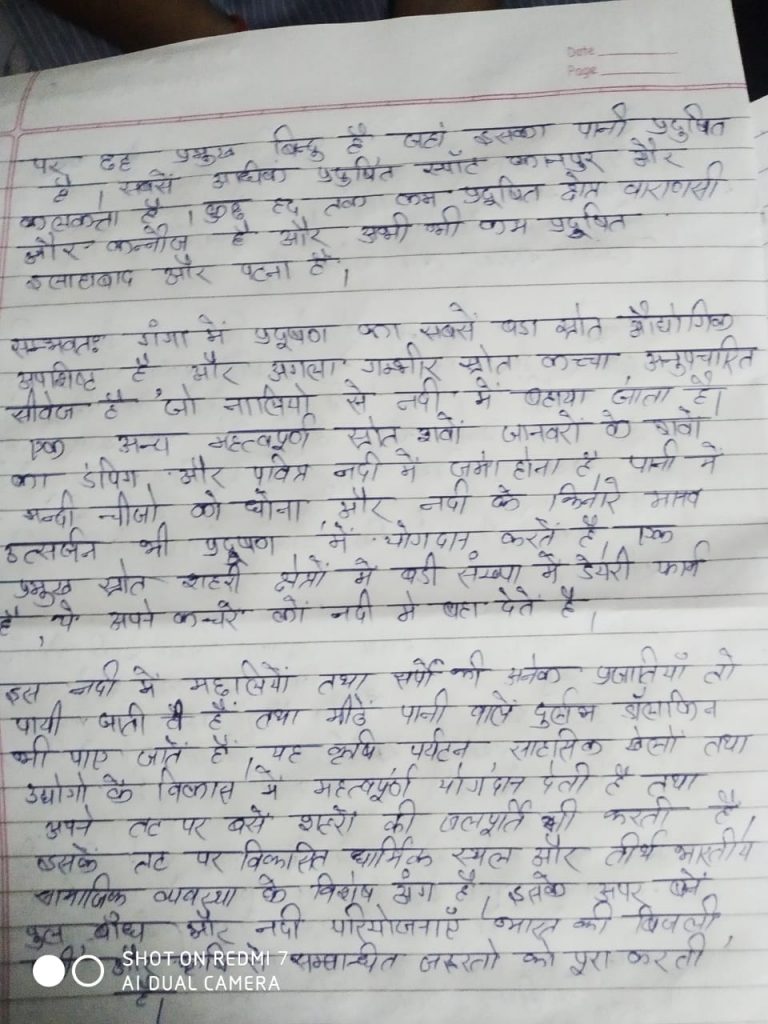 Date
Page
पर छह प्रमुख बिन्दु है जहां इसका पानी प्रदुषित
है। सबसे अधिक प्रदुषित स्पॉट कानपुर और
कलकत्ता है। कुछ हद तक कम प्रदूषित क्षेत्र वाराणसी
और कन्नौज है और अभी भी कम प्रदूषित
इलाहाबाद और पटना है।
सम्भवतः गंगा में प्रदूषण का सबसे बडा स्रोत औद्योगिक
अपशिष्ट है और अगला गम्भीर स्रोत कच्चा अनुपचारित
सीवेज है जो नालियो से नदी में बहाया जाता है।
एक अन्य महत्वपूर्ण स्रोत शवों जानवरों के शवों
का डंपिग और पवित्र नदी में जमा होना है पानी में
गन्दी चीजो को धोना और नदी के किनारे मानव
उत्सर्जन भी प्रदूषण में योगदान करतें है, एक
प्रमुख स्रोत शहरी क्षेत्रों में बडी संख्या में डेयरी फार्म
है, ये अपने कचरे कों नदी मे बहा देतें है।
इस नदी में मछलियों तथा सर्पो की अनेक प्रजातियाँ तो
पायी जाती है हैं तथा मीठें पानी वालें दुर्लभ डॉलफिन
भी पाए जातें हैं, यह कृषि पर्यटन साहसिक खेलों तथा
उद्योगो के विकास में महत्वपूर्ण योगदान देती है तथा
अपने तट पर बसे शहरो की जलपूर्ति भी करती है,
इसकें तट पर विकसित धार्मिक स्थल और तीर्थ भारतीय
सामाजिक व्यवस्था के विशेष अंग है, इसके ऊपर बने
पुल बांध और नदी परियोजनाएँ भारत की बिजली,
और कृषि से सम्बन्धित जरूरतो को पूरा करती
है।
SHOT ON REDMI 7
AI DUAL CAMERA